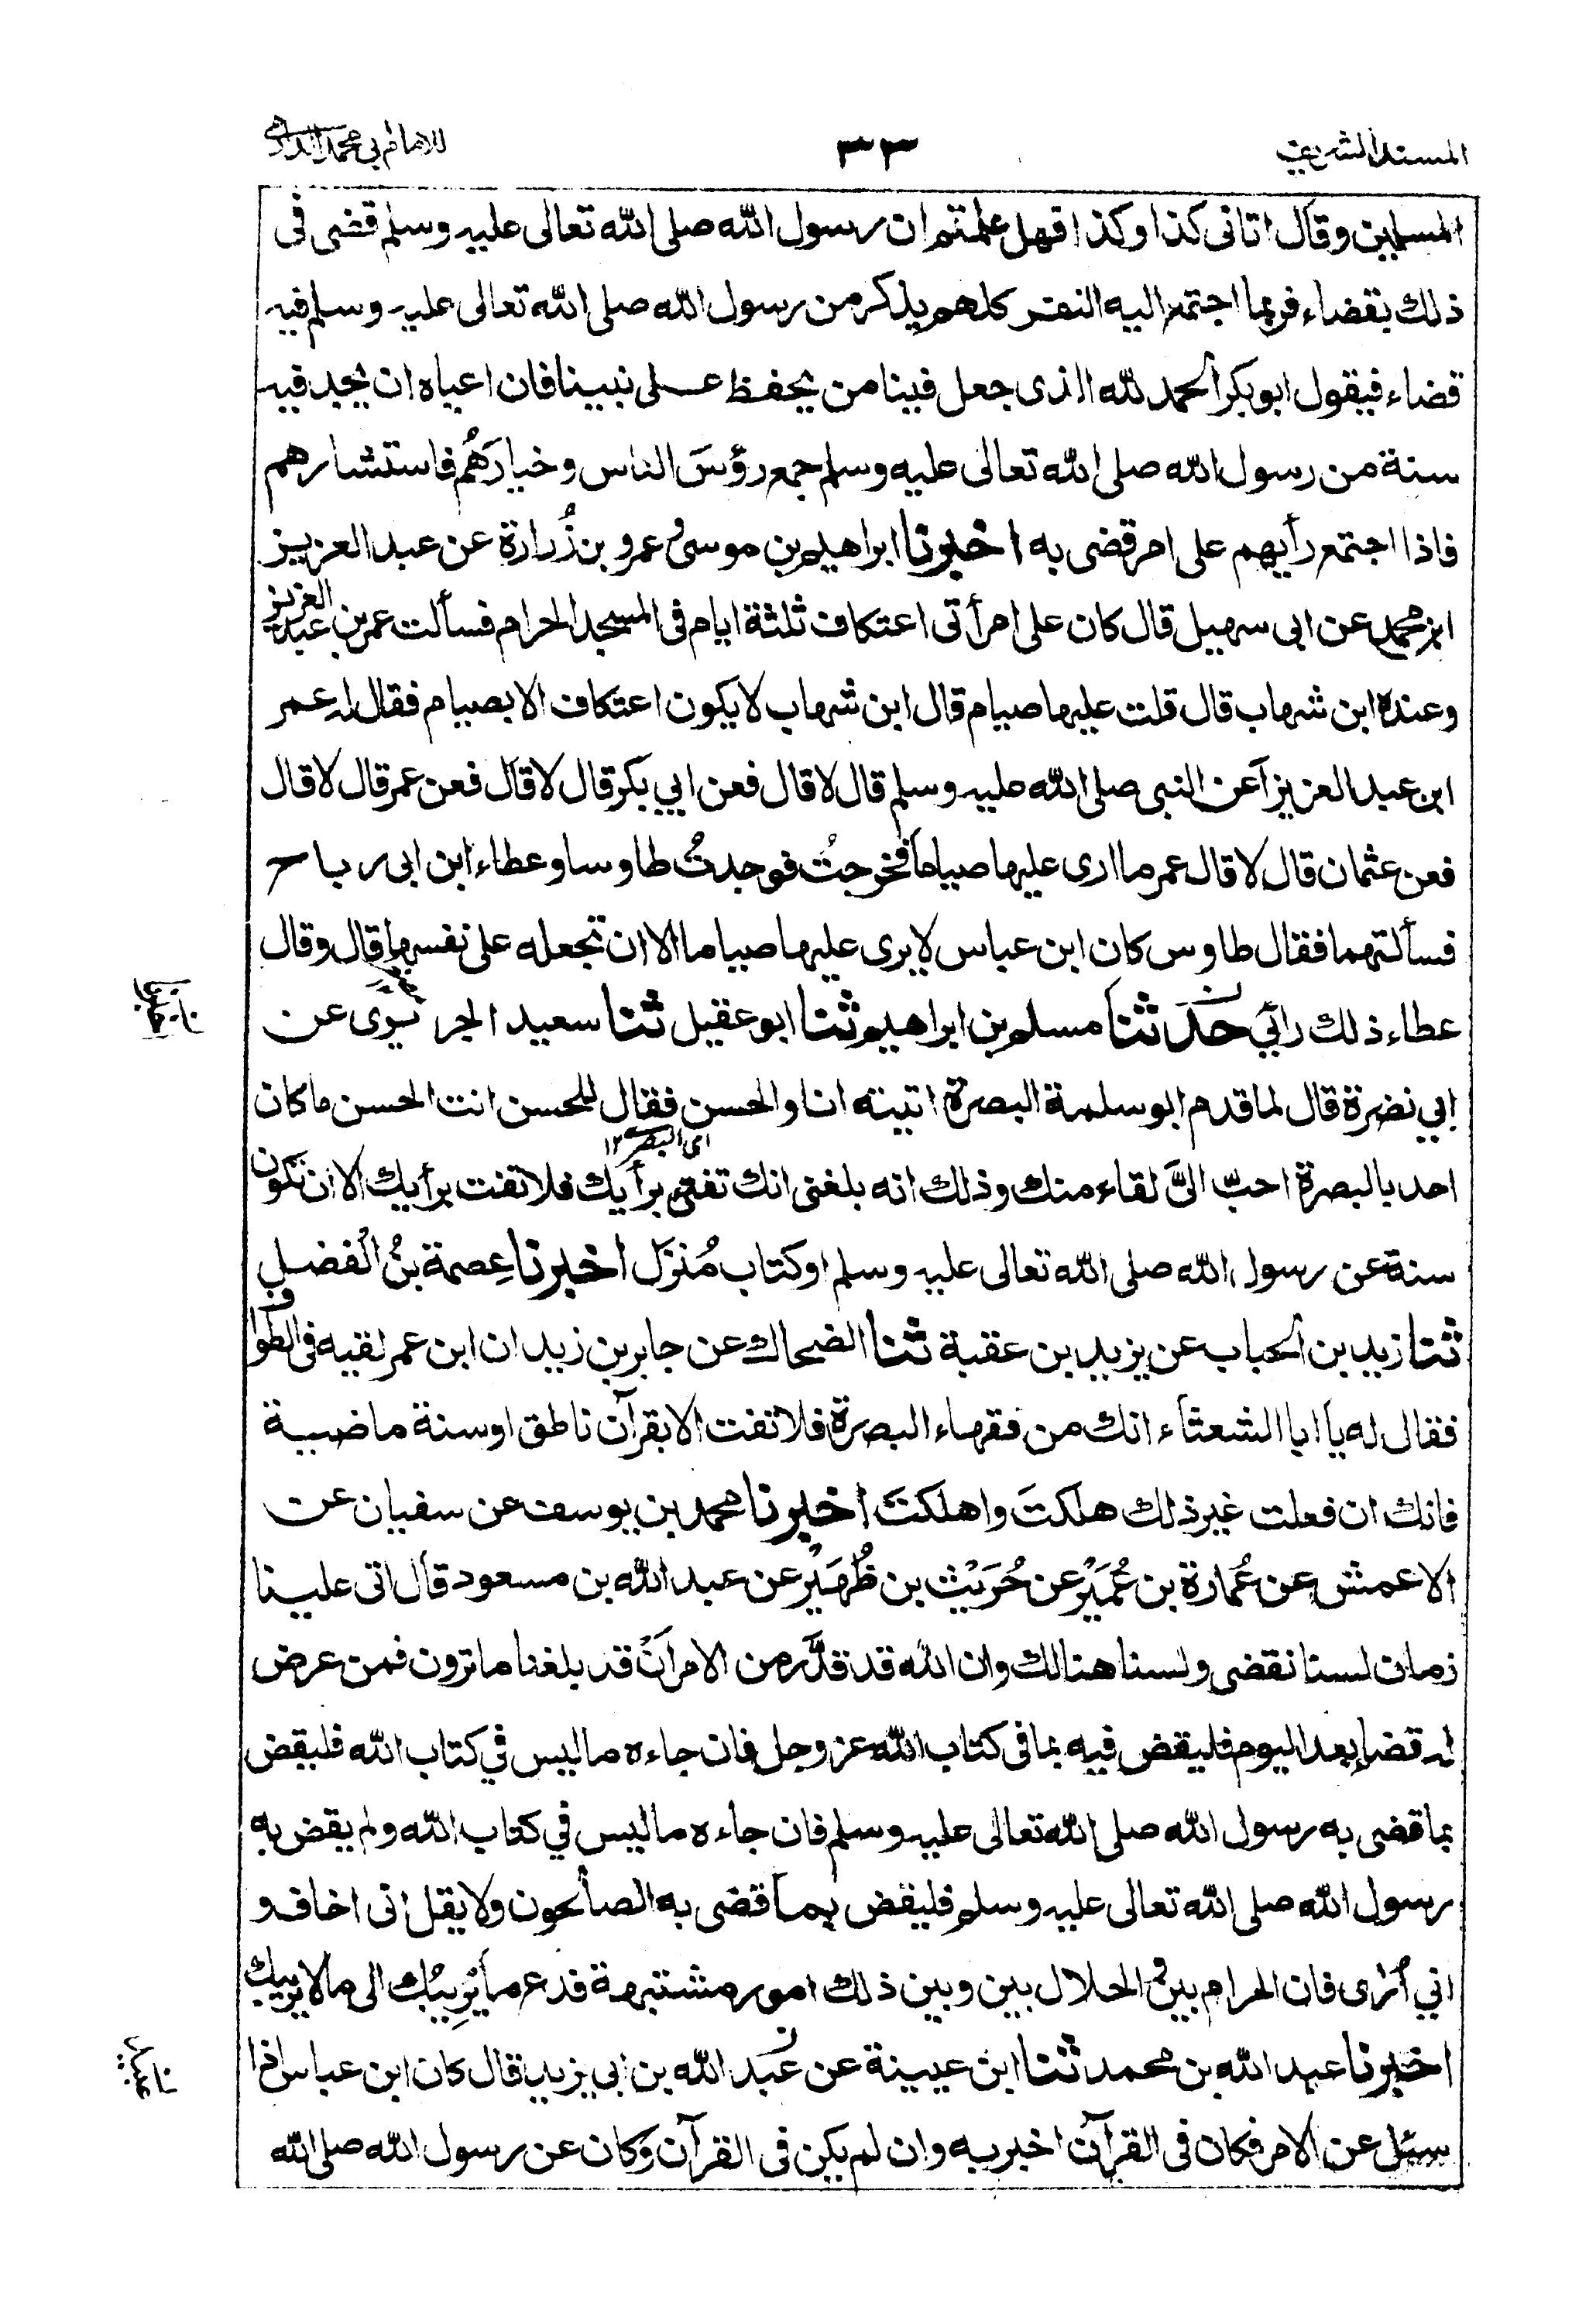 المسند الشريف ٣٣ للامام ابي محمد الدارمي
المسلمين وقال اتانى كذا وكذا فهل علمتم ان رسول الله صلى الله تعالى عليه وسلم قضى فى
ذلك بقضاء فربما اجتمع اليه النفر كلهم يذكر من رسول الله صلى الله تعالى عليه وسلم فيه
قضاء فيقول ابو بكر الحمد لله الذى جعل فينا من يحفظ على نبينا فان اعياه ان يجد فيه
سنة من رسول الله صلى الله تعالى عليه وسلم جمع رؤسَ الناس وخيارَهُم فاستشارهم
فاذا اجتمع رأيهم على امر قضى به اخبرنا ابراهيم بن موسى و عمرو بن زُرارة عن عبد العزيز
ابن محمد عن ابى سهيل قال كان على امرأتى اعتكاف ثلثة ايام فى المسجد الحرام فسألت عمر بن عبد العزيز
وعنده ابن شهاب قال قلت عليها صيام قال ابن شهاب لا يكون اعتكاف الا بصيام فقال له عمر
ابن عبد العزيز أعن النبى صلى الله عليه وسلم قال لا قال فعن ابي بكر قال لا قال فعن عمر قال لا قال
فعن عثمان قال لا قال عمر ما ارى عليها صياما فخرجتُ فوجدتُ طاوسا وعطاء ابن ابى رباح
فسألتهما فقال طاوس كان ابن عباس لا يرى عليها صياما الا ان تجعله على نفسها قال وقال
عطاء ذلك رائي حدثنا مسلم بن ابراهيم ثنا ابو عقيل ثنا سعيد الجريرى عن
ابي نضرة قال لما قدم ابو سلمة البصرة اتيته انا والحسن فقال للحسن انت الحسن ما كان
اى البصرے ١٢
احد بالبصرة احبّ الىَّ لقاء منك وذلك انه بلغنى انك تفتى برأيك فلا تفت برأيك الا ان تكون
سنة عن رسول الله صلى الله تعالى عليه وسلم او كتاب مُنزَل اخبرنا عِصمة بنُ الفضل
ثنا زيد بن الحباب عن يزيد بن عقبة ثنا الضحاك عن جابر بن زيد ان ابن عمر لقيه فى الطواف
فقال له يا ابا الشعثاء انك من فقهاء البصرة فلا تفت الا بقرآن ناطق او سنة ماضية
فانك ان فعلت غير ذلك هلكتَ واهلكتَ اخبرنا محمد بن يوسف عن سفيان عن
الاعمش عن عُمارة بن عُمَيْر عن حُرَيْث بن ظُهَيْر عن عبد الله بن مسعود قال اتى علينا
زمان لسنا نقضى ولسنا هنالك وان الله قد قدَّر من الامر اَنْ قد بلغنا ما ترون فمن عرض
له قضاء بعد اليوم فليقض فيه بما فى كتاب الله عز وجل فان جاءه ما ليس في كتاب الله فليقض
بما قضى به رسول الله صلى الله تعالى عليه وسلم فان جاءه ما ليس في كتاب الله ولم يقض به
رسول الله صلى الله تعالى عليه وسلم فليقض بما قضى به الصالحون ولا يقل انى اخاف و
اني أُرٰى فان الحرام بين و الحلال بين وبين ذلك امور مشتبهة فدع ما يُرِيبُك الى ما لا يريبك
اخبرنا عبد الله بن محمد ثنا ابن عيينة عن عبد الله بن ابى يزيد قال كان ابن عباس اذا
سئل عن الامر فكان فى القرآن اخبر به وان لم يكن فى القرآن وكان عن رسول الله صلى الله